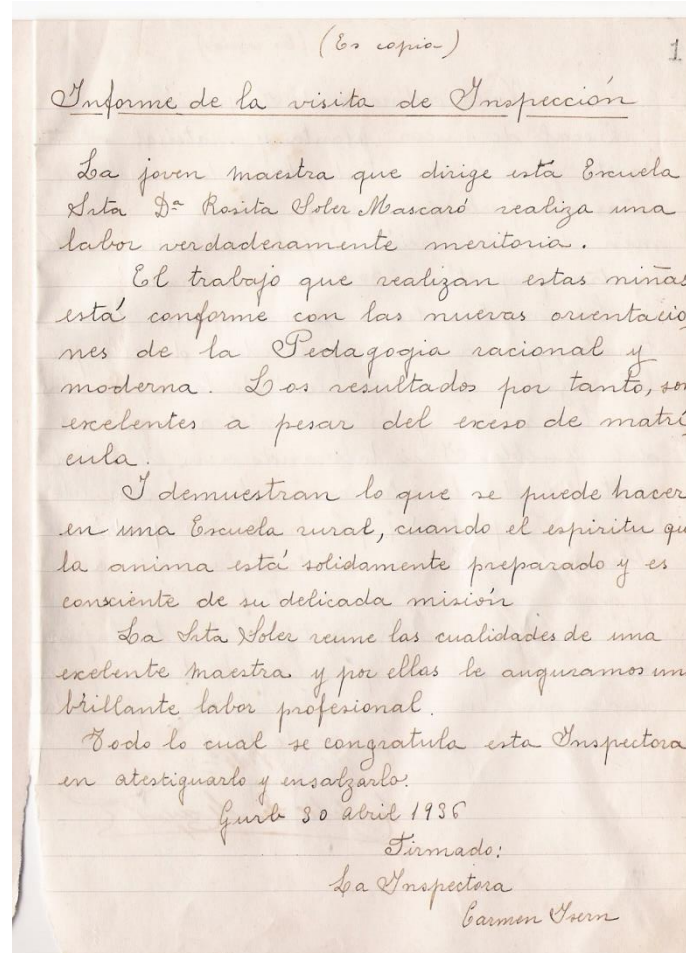 (Es copia)
1
Informe de la visita de Inspección
La joven maestra que dirige esta Escuela
Srta Dª Rosita Soler Mascaró realiza una
labor verdaderamente meritoria.
El trabajo que realizan estas niñas
está conforme con las nuevas orientacio
nes de la Pedagogia racional y
moderna. Los resultados por tanto, son
excelentes a pesar del exceso de matrí
cula.
I demuestran lo que se puede hacer
en una Escuela rural, cuando el espiritu qu
la anima está solidamente preparado y es
consciente de su delicada misión
La Srta Soler reune las cualidades de una
excelente maestra y por ellas le auguramos un
brillante labor profesional.
Todo lo cual se congratula esta Inspectora
en atestiguarlo y ensalzarlo.
Gurb 30 abril 1936
Firmado:
La Inspectora
Carmen Isern